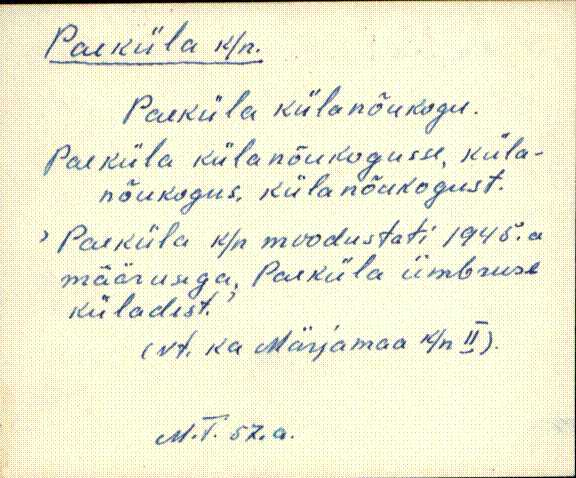 Paeküla k/n.
Paeküla külanõukogu.
Paeküla külanõukogusse, küla-
nõukogus, külanõukogust.
› Paeküla k/n moodustati 1945.a
määrusega, Paeküla ümbruse
küladest.›
(vt. ka Märjamaa k/n II).
M.T. 57.a.